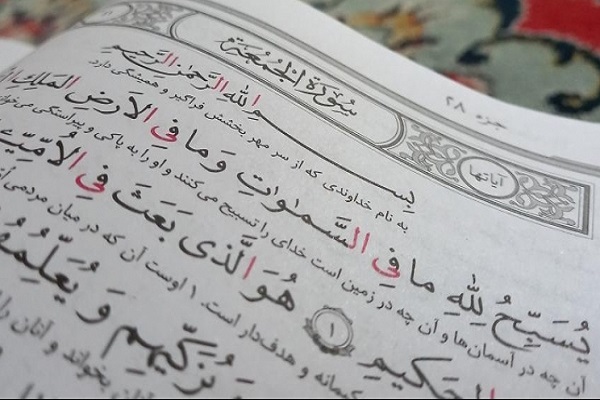 جزء ۲۸
سورة الجمعة
آیاتها
بِسْمِ اللهِ الرَّحْمٰنِ الرَّحیمِ
به نام خداوندی که از سر مهر بخشش فراگیر و همیشگی دارد
یُسَبِّحُ لِلّٰهِ ما فِی السَّمٰوٰتِ وَ ما فِی الْاَرْضِ الْمَلِکِ
آن چه در آسمان‌ها و آن چه در زمین است خدای را تسبیح می‌کنند و او را به پاکی و پیراستگی می
الْحَکیمِ ۱ هُوَ الَّذی بَعَثَ فِی الْاُمِّیّ
کیمانه و هدف‌دار است. ۱ اوست آن که در میان مردمی
وَ یُزَکّیهِمْ وَ یُعَلِّمُهُ
بخواند و آنان را